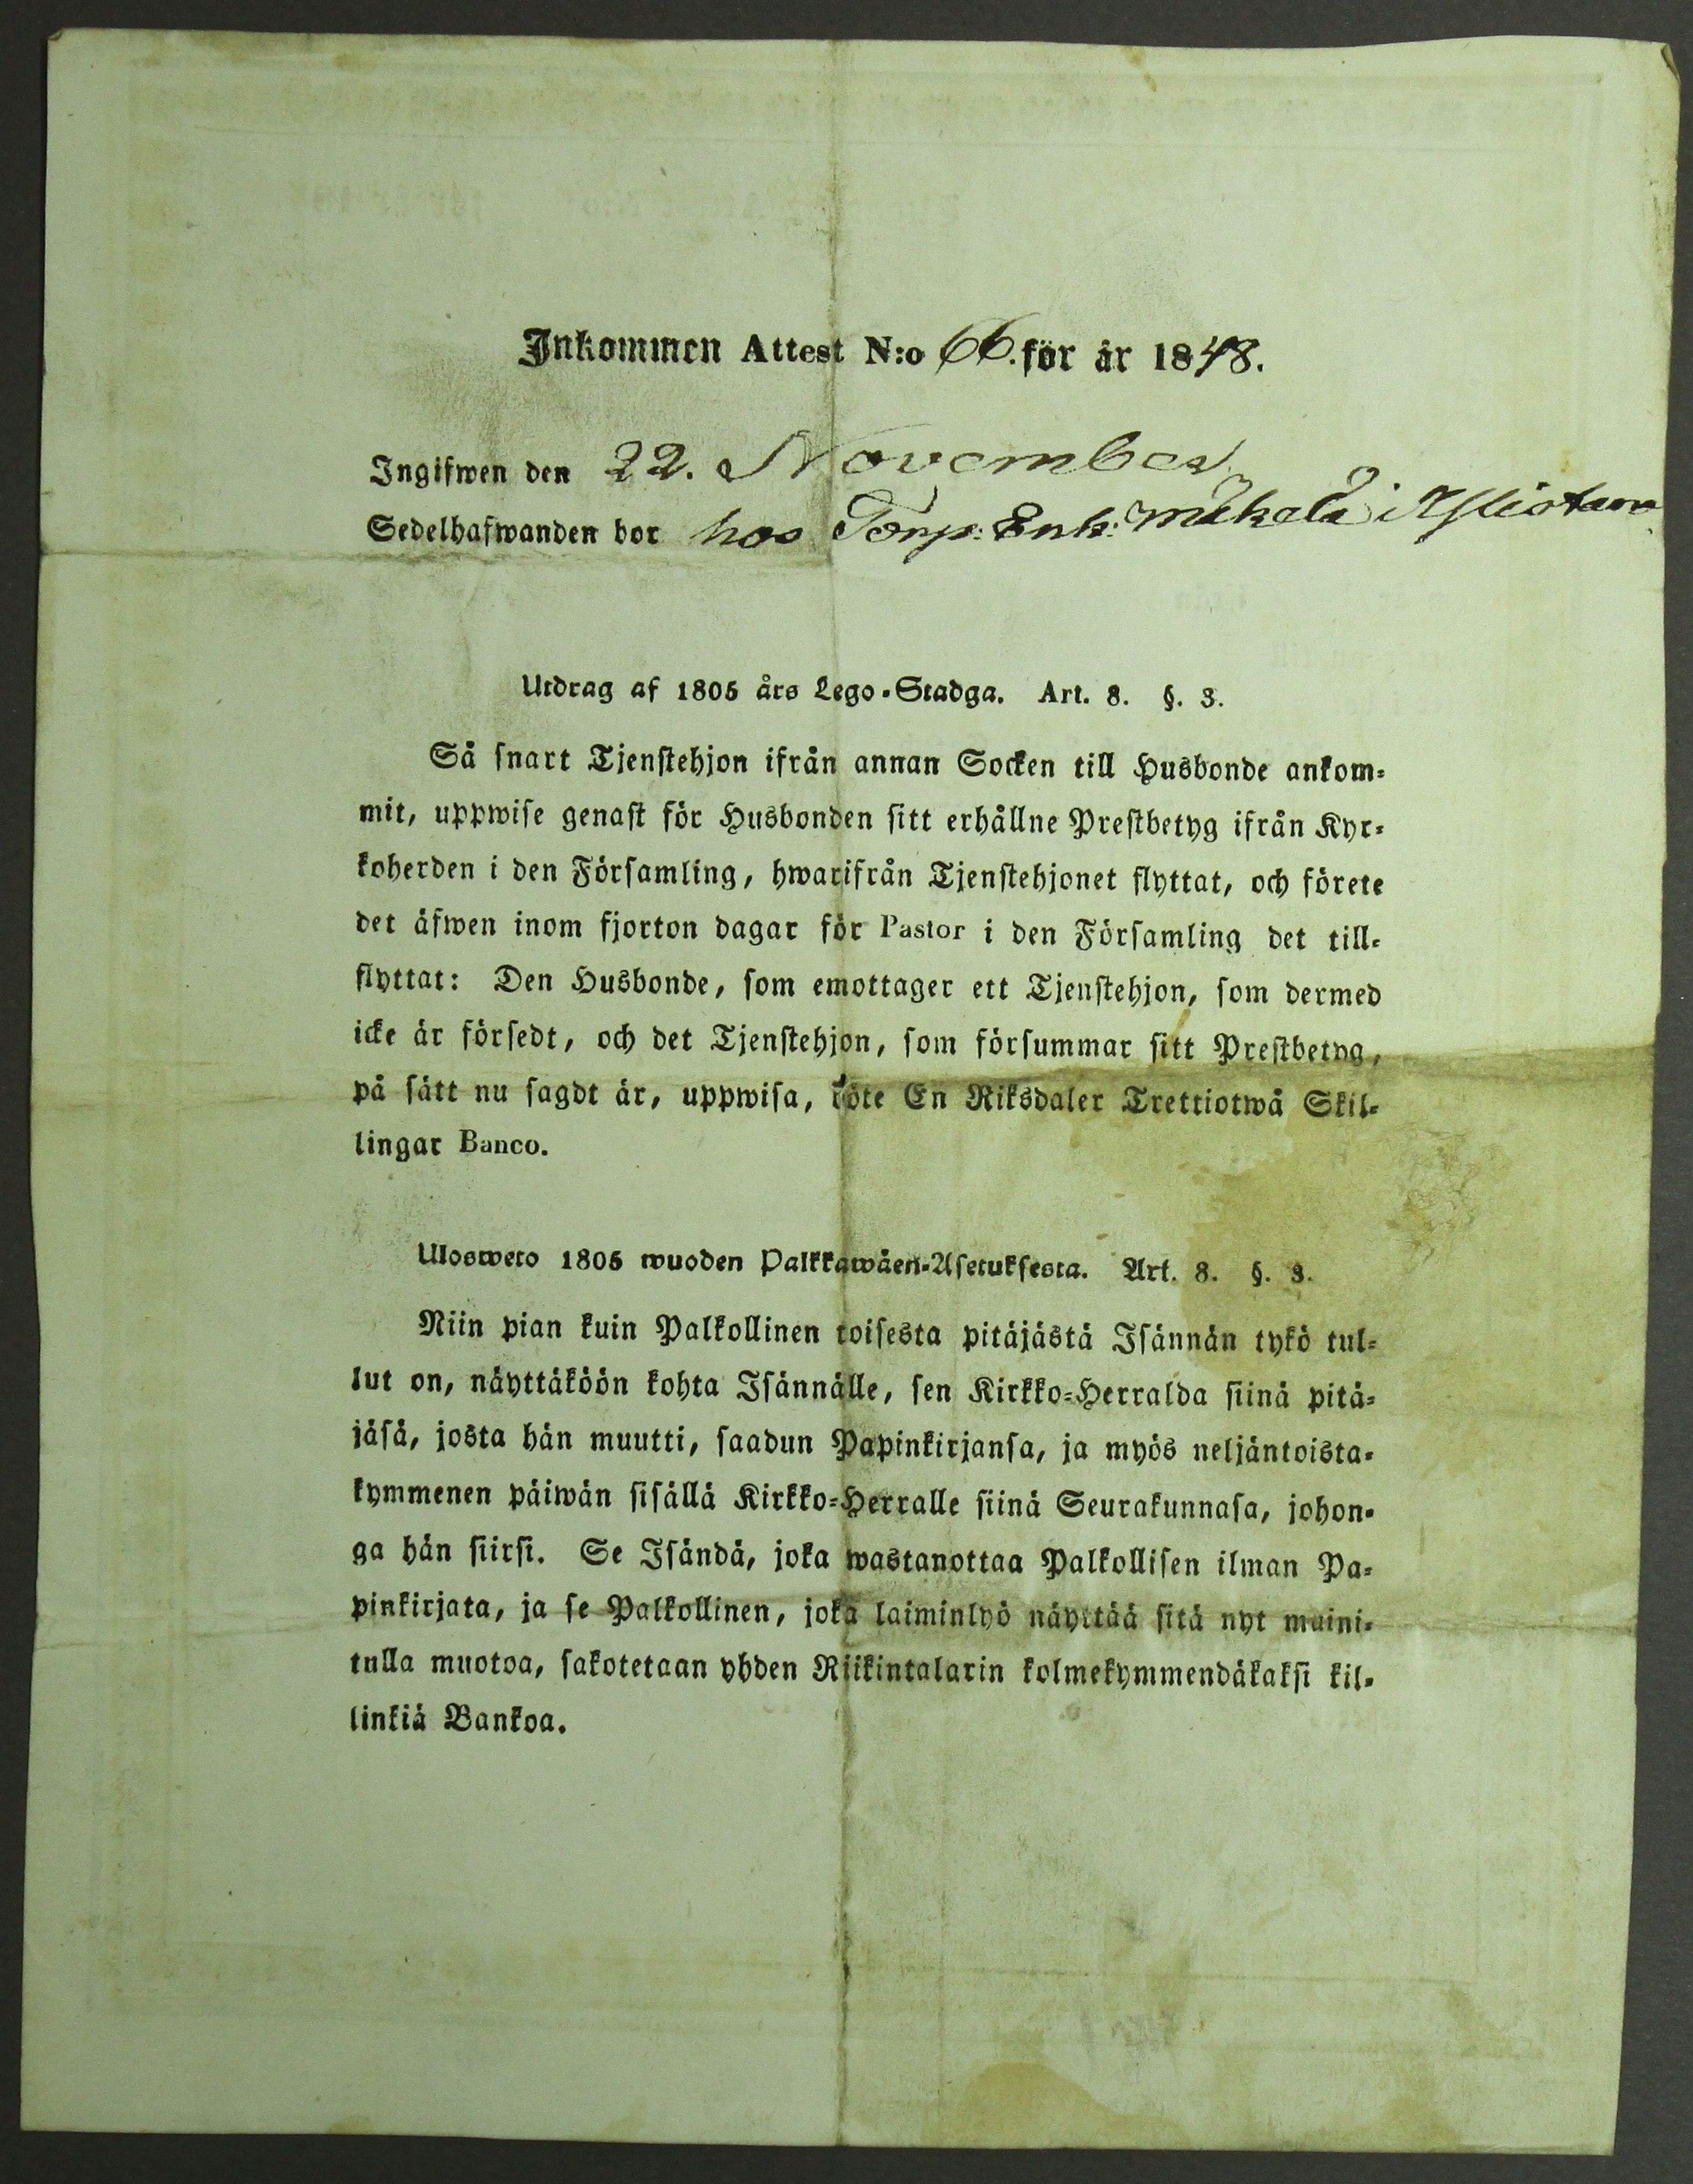 Inkommen Attest N:o 66. för år 1848.
Ingifwen den 22. November
Sedelhafwanden bor hos Torp: Enk: Mäkelä i
Utdrag af 1805 års Lego-Stadga. Art. 8. §. 3.
Så snart Tjenstehjon ifrån annan Socken till Husbonde ankom-
mit, uppwise genast för Husbonden sitt erhållne Prestbetyg ifrån Kyr-
koherden i den Församling, hwarifrån Tjenstehjonet flyttat, och förete
det äfwen inom fjorton dagar för Pastor i den Församling det till-
flyttat: Den Husbonde, som emottager ett Tjenstehjon, som dermed
icke är försedt, och det Tjenstehjon, som försummar sitt Prestbetyg,
på sätt nu sagdt är, uppwisa, böte En Riksdaler Trettiotwå Skil-
lingar Banco.
Ulosweto 1805 wuoden Palkkawäen-Asetuksesta. Art. 8. §. 3.
Niin pian kuin Palkollinen toisesta pitäjästä Isännän tykö tul-
lut on, näyttäköön kohta Isännälle, sen Kirkko-Herralda siinä pitä-
jäsä, josta hän muutti, saadun Papinkirjansa, ja myös neljäntoista-
kymmenen päiwän sisällä Kirkko-Herralle siinä Seurakunnasa, johon-
ga hän siirsi. Se Isändä, joka wastanottaa Palkollisen ilman Pa-
pinkirjata, ja se Palkollinen, joka laiminlyö näyttää sitä nyt maini-
tulla muotoa, sakotetaan yhden Riikintalarin kolmekymmendäkaksi kil-
linkiä Bankoa.